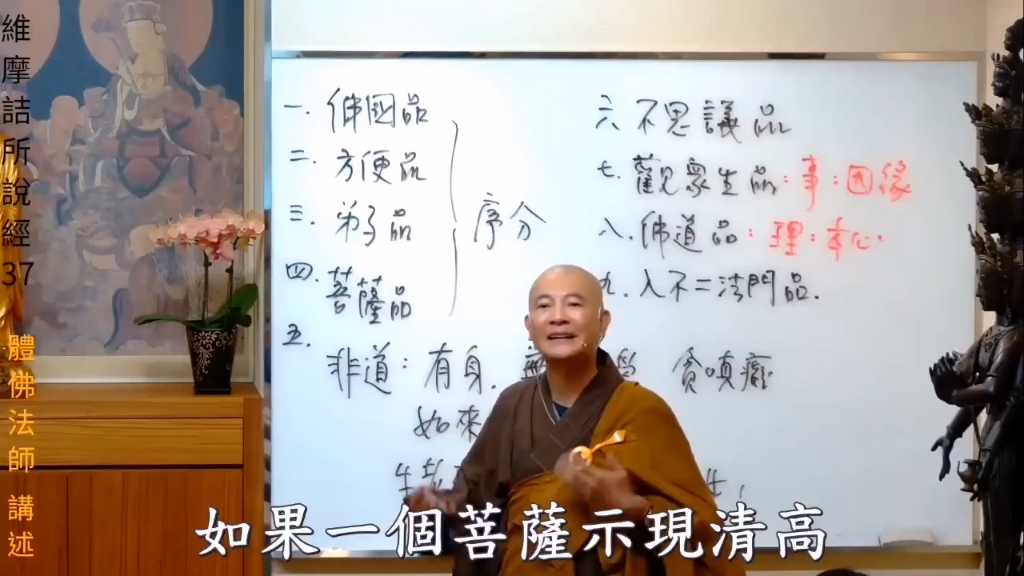 維摩詰所說經37
體佛法師 講述
一. 佛國品
二. 方便品
三. 弟子品
四. 菩薩品
序分
五.
六 不思議品
七. 觀眾生品:事:因緣
八. 佛道品:理:本心.
九. 入不二法門品.
非道:有身.
貪嗔癡
如來
如果一個菩薩示現清高